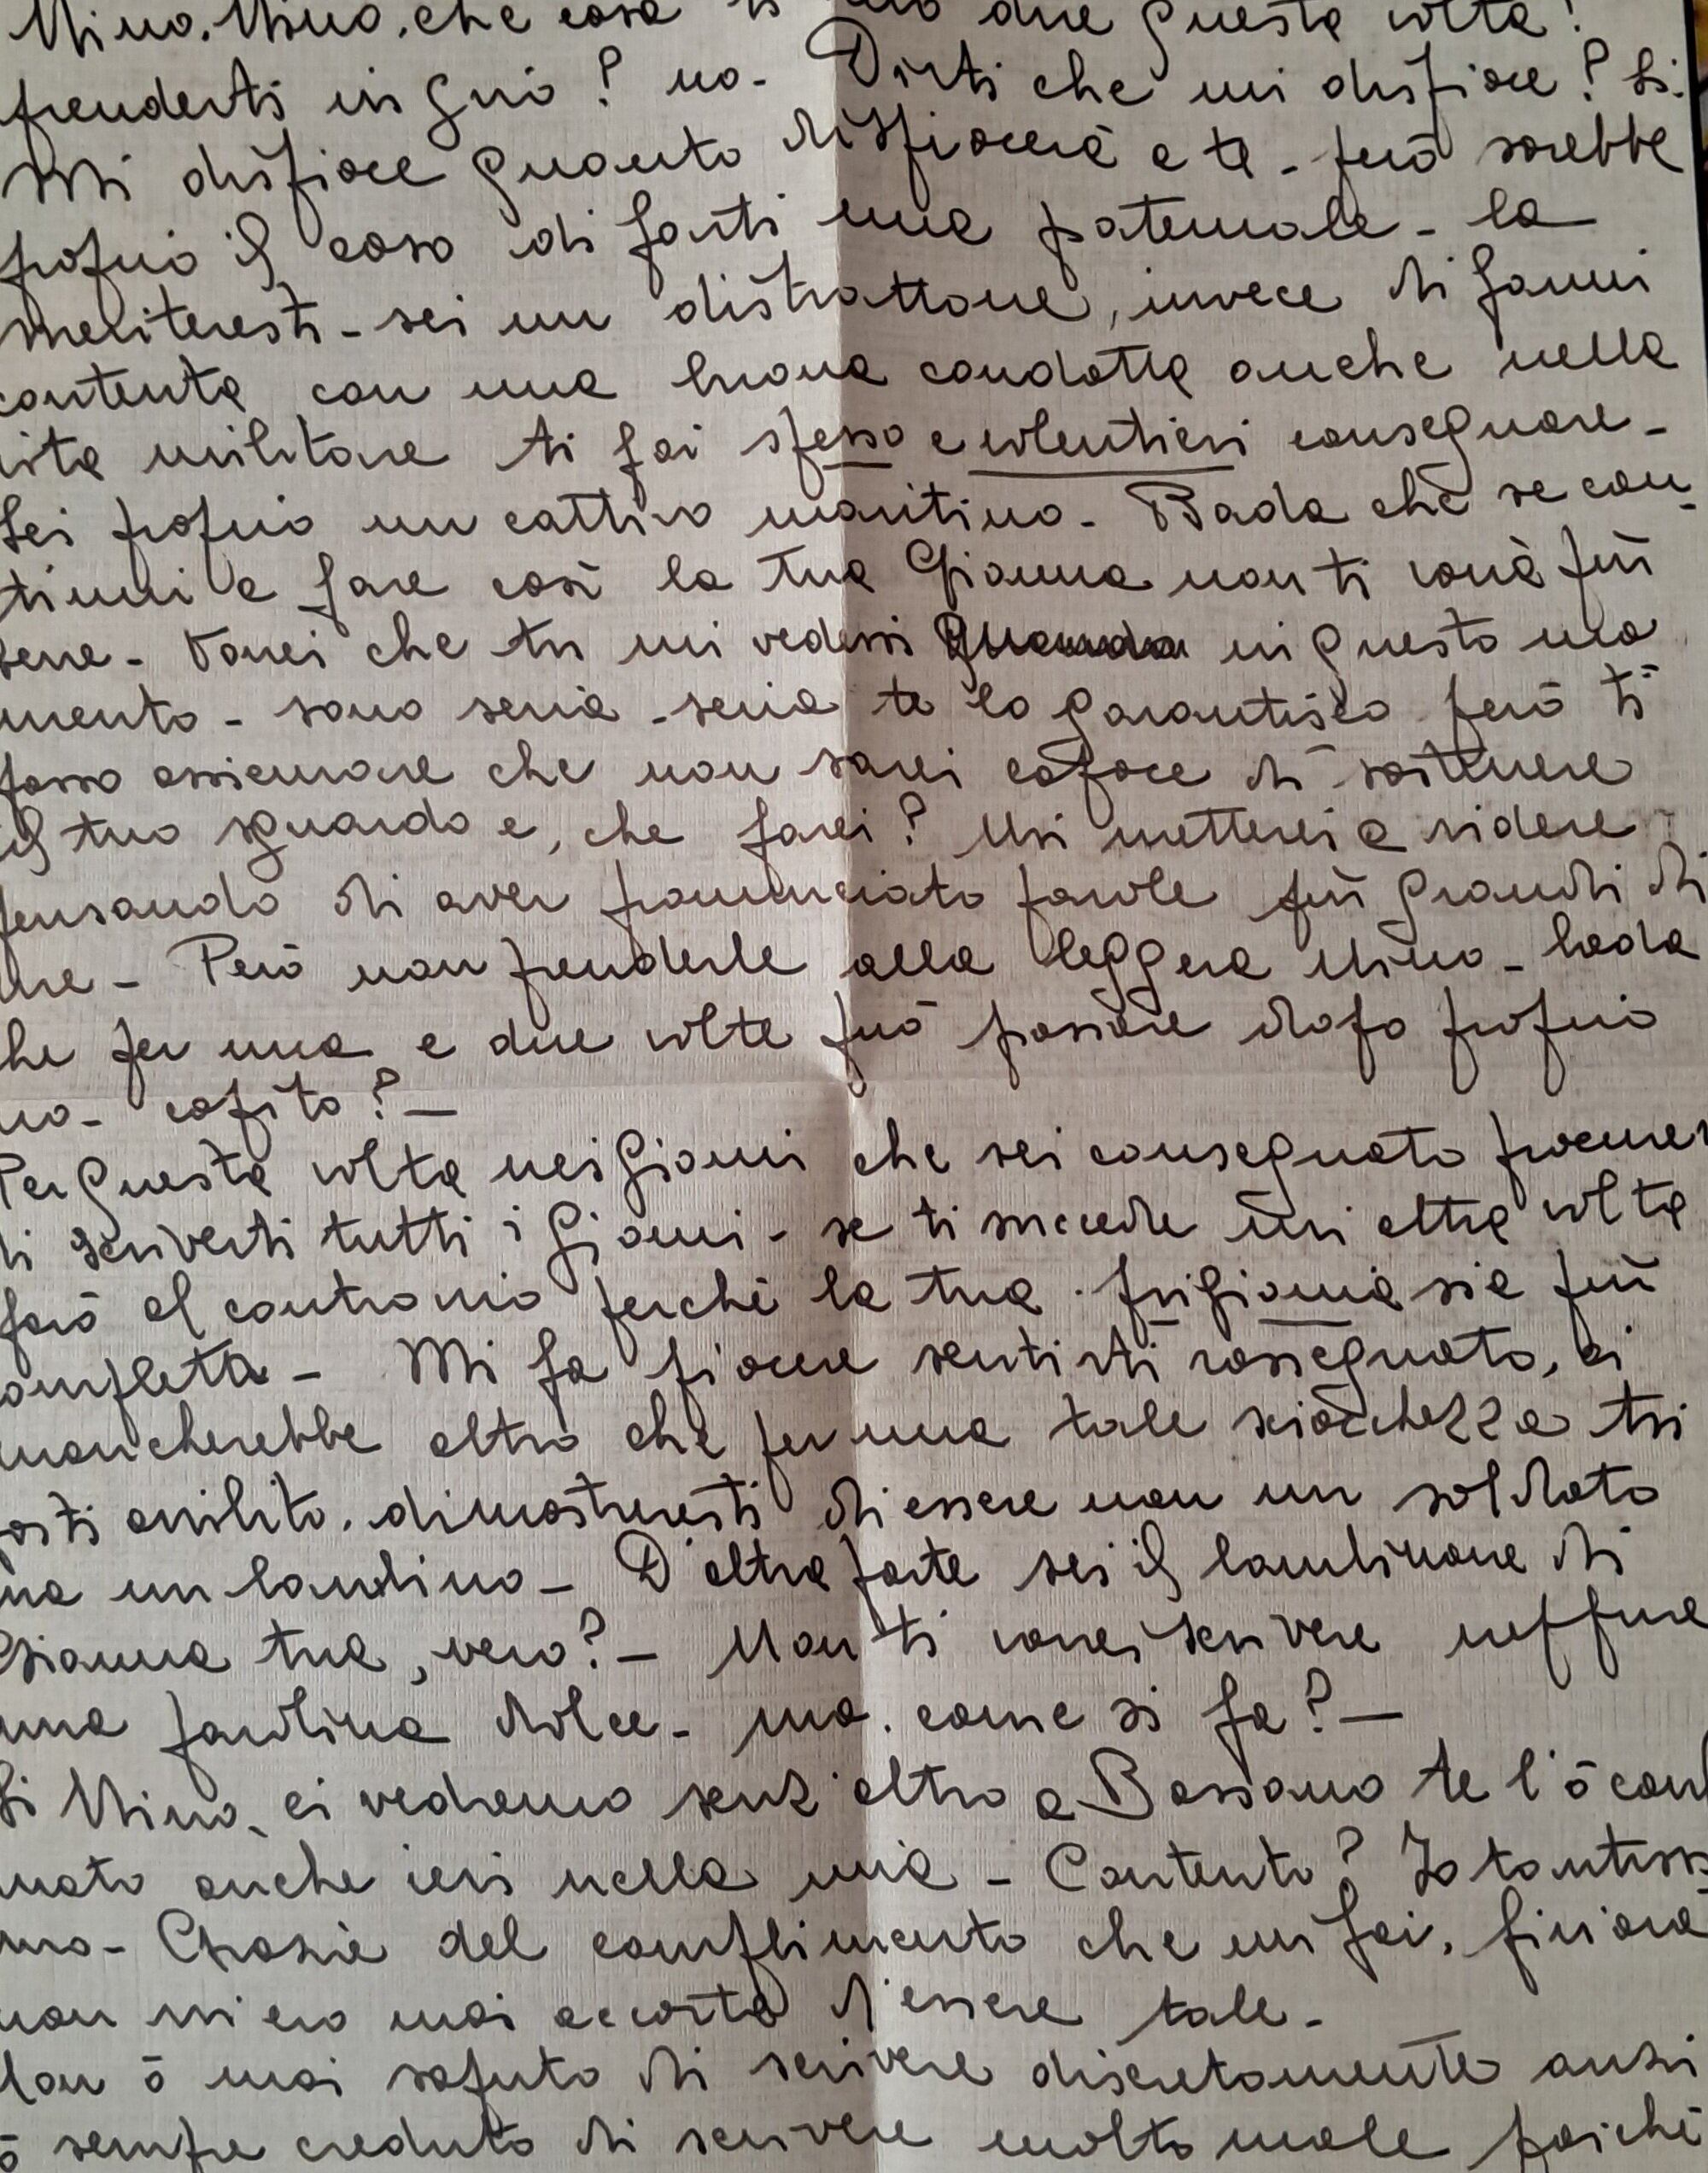 Mino, Mino, che cosa ti due questa volta!
prenderti in giro? no- Dirti che mi dispiace? Si.
Mi dispiace quanto dispiacerà a te - però sarebbe
proprio il caso di farti una paternale - la
meriteresti - sei un distrattone, invece di farmi
contenta con una buona condotta anche nella
vita militare ti fai spesso e volentieri consegnare -
Sei proprio un cattivo maritino - Bada che se con-
tinui a fare così la tua Gianna non ti vorrà più
bene - Vorrei che tu mi vedessi in questo mo
mento - sono seria - seria te lo garantisco però ti
posso assicurare che non sarei capace di sostenere
il tuo sguardo e, che farei? Mi metterei a ridere
pensando di aver pronunciato parole più grandi di
me - Però non prenderle alla leggera Mino - bada
che per una e due volte può passare dopo proprio
no - capito? -
Per questa volta nei giorni che sei consegnato procurerò
di scriverti tutti i giorni - se ti succede un'altra volta
farò al contrario perchè la tua prigionia sia più
completa - Mi fa piacere sentirti rassegnato, ci
mancherebbe altro che per una tale sciocchezza tu
fosti avvilito, dimostreresti di essere non un soldato
ma un bambino - D'altra parte sei il bambinone di
Gianna tua, vero? - Non ti vorrei scrivere neppure
una parolina dolce - ma. come si fa? -
Si Mino, ci vedremo senz'altro a Bassano te l'ò confer
mato anche ieri nella mia - Contento? Io tantissi
mo - Grazie del complimento che mi fai, finora
non mi ero mai accorta d'essere tale -
Non ò mai saputo di scrivere discretamente anzi
ò sempre creduto di scrivere molto male poichè